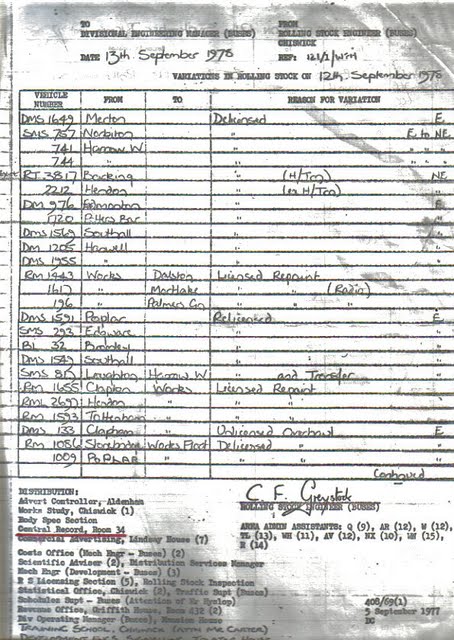 TO FROM
DIVISIONAL ENGINEERING MANAGER (BUSES) ROLLING STOCK ENGINEER (BUSES)
CHISWICK
DATE 13th September 1978 REF:
VARIATIONS IN ROLLING STOCK ON 12th September 1978
VEHICLE NUMBER FROM TO REASON FOR VARIATION
DMS 1649 Merton Delicensed E
SMS 757 Norbiton " E to NE
741 Harrow W " " " "
744 " " " " "
RT 3817 Barking " (H/Trg) NE
2212 Hendon " (ex H/Trg) "
DM 976 Edmonton " E
1720 Potters Bar " "
DMS 1569 Southall " "
DM 1205 Hanwell " "
DMS 1955 " " "
RM 1443 Works Dalston Licensed Repaint
1617 " Mortlake " " (Radio)
196 " Palmers Gn " "
DMS 1591 Poplar Relicensed E
SMS 293 Edgware " "
BL 32 Bromley " "
DMS 1549 Southall " "
SMS 815 Loughton Harrow W " and Transfer "
RM 1655 Clapton Works Licensed Repaint
RML 2697 Hendon " " "
RM 1593 Tottenham " " "
DMS 133 Clapham " Unlicensed Overhaul E
RM 1086 Stonebridge Works Float Delicensed "
1009 POPLAR " " "
Continued
C. F. Greystock
ROLLING STOCK ENGINEER (BUSES)
DISTRIBUTION:
Advert Controller, Aldenham
Works Study, Chiswick (1)
Body Spec Section
Central Record, Room 34
Commercial Advertising, Lindsay House (7)
Costs Office (Mech Engr - Buses) (2)
Scientific Adviser (2), Distribution Services Manager
Mech Engr (Development - Buses) (3)
R S Licensing Section (5), Rolling Stock Inspection
Statistical Office, Chiswick (2), Traffic Supt (Buses)
Schedules Supt - Buses (Attention of Mr Hyslop)
Revenue Office, Griffith House, Room 212 (2)
Div Operating Manager (Buses), Mansion House
TRAINING SCHOOL, CHISWICK (ATTN MR CARTER)
AREA ADMIN ASSISTANTS: Q (9), AR (12), W (12),
TL (13), WH (11), AV (12), NX (10), HW (15),
R (14)
408/69(1)
9 September 1977
DG